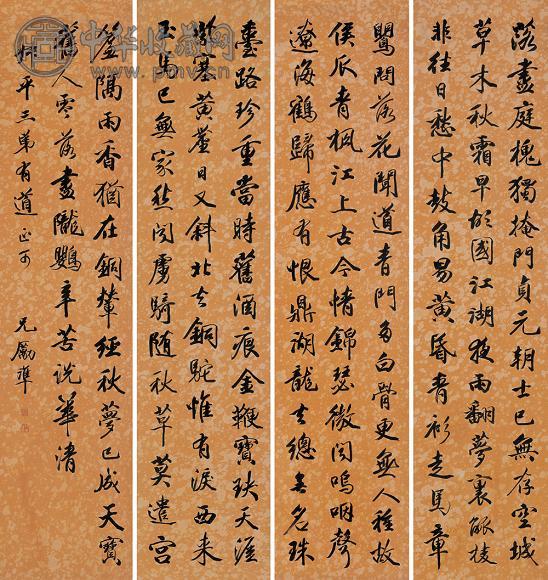 落盡庭槐獨掩門貞元朝士已無存空城
草木秋霜早故國江湖夜雨翻夢裏觚棱
非往日愁中鼓角易黃昏青衫走馬章
鸎問落花聞道青門多白骨更無人種故
侯瓜青楓江上古今情錦瑟微聞嗚咽聲
遼海鶴歸應有恨鼎湖龍去總無名珠
臺路珍重當時舊酒痕金鞭寶玦天涯
斷塞黃蘆日又斜北去銅駝惟有淚西来
玉馬已無家愁聞虜騎随秋草莫遣宮
簾隔雨香猶在銅輦經秋夢已成天寶
舊人零落盡隴鸚辛苦説華清
平三弟有道正可
兄勵準
中华收藏网